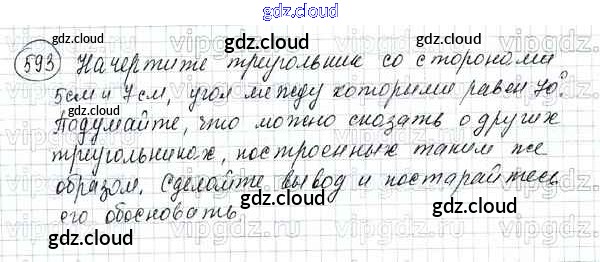 gdz.cloud
593 Начертите треугольник со сторонами
5см и 7см, угол между которыми равен 70°.
Подумайте, что можно сказать о других
треугольниках, построенных таким же
образом. Сделайте вывод и постарайтесь
его обосновать.
gdz.cloud gdz.cloud
gdz.cloud gdz.cloud
gdz.cloud gdz.cloud
gdz.cloud gdz.cloud